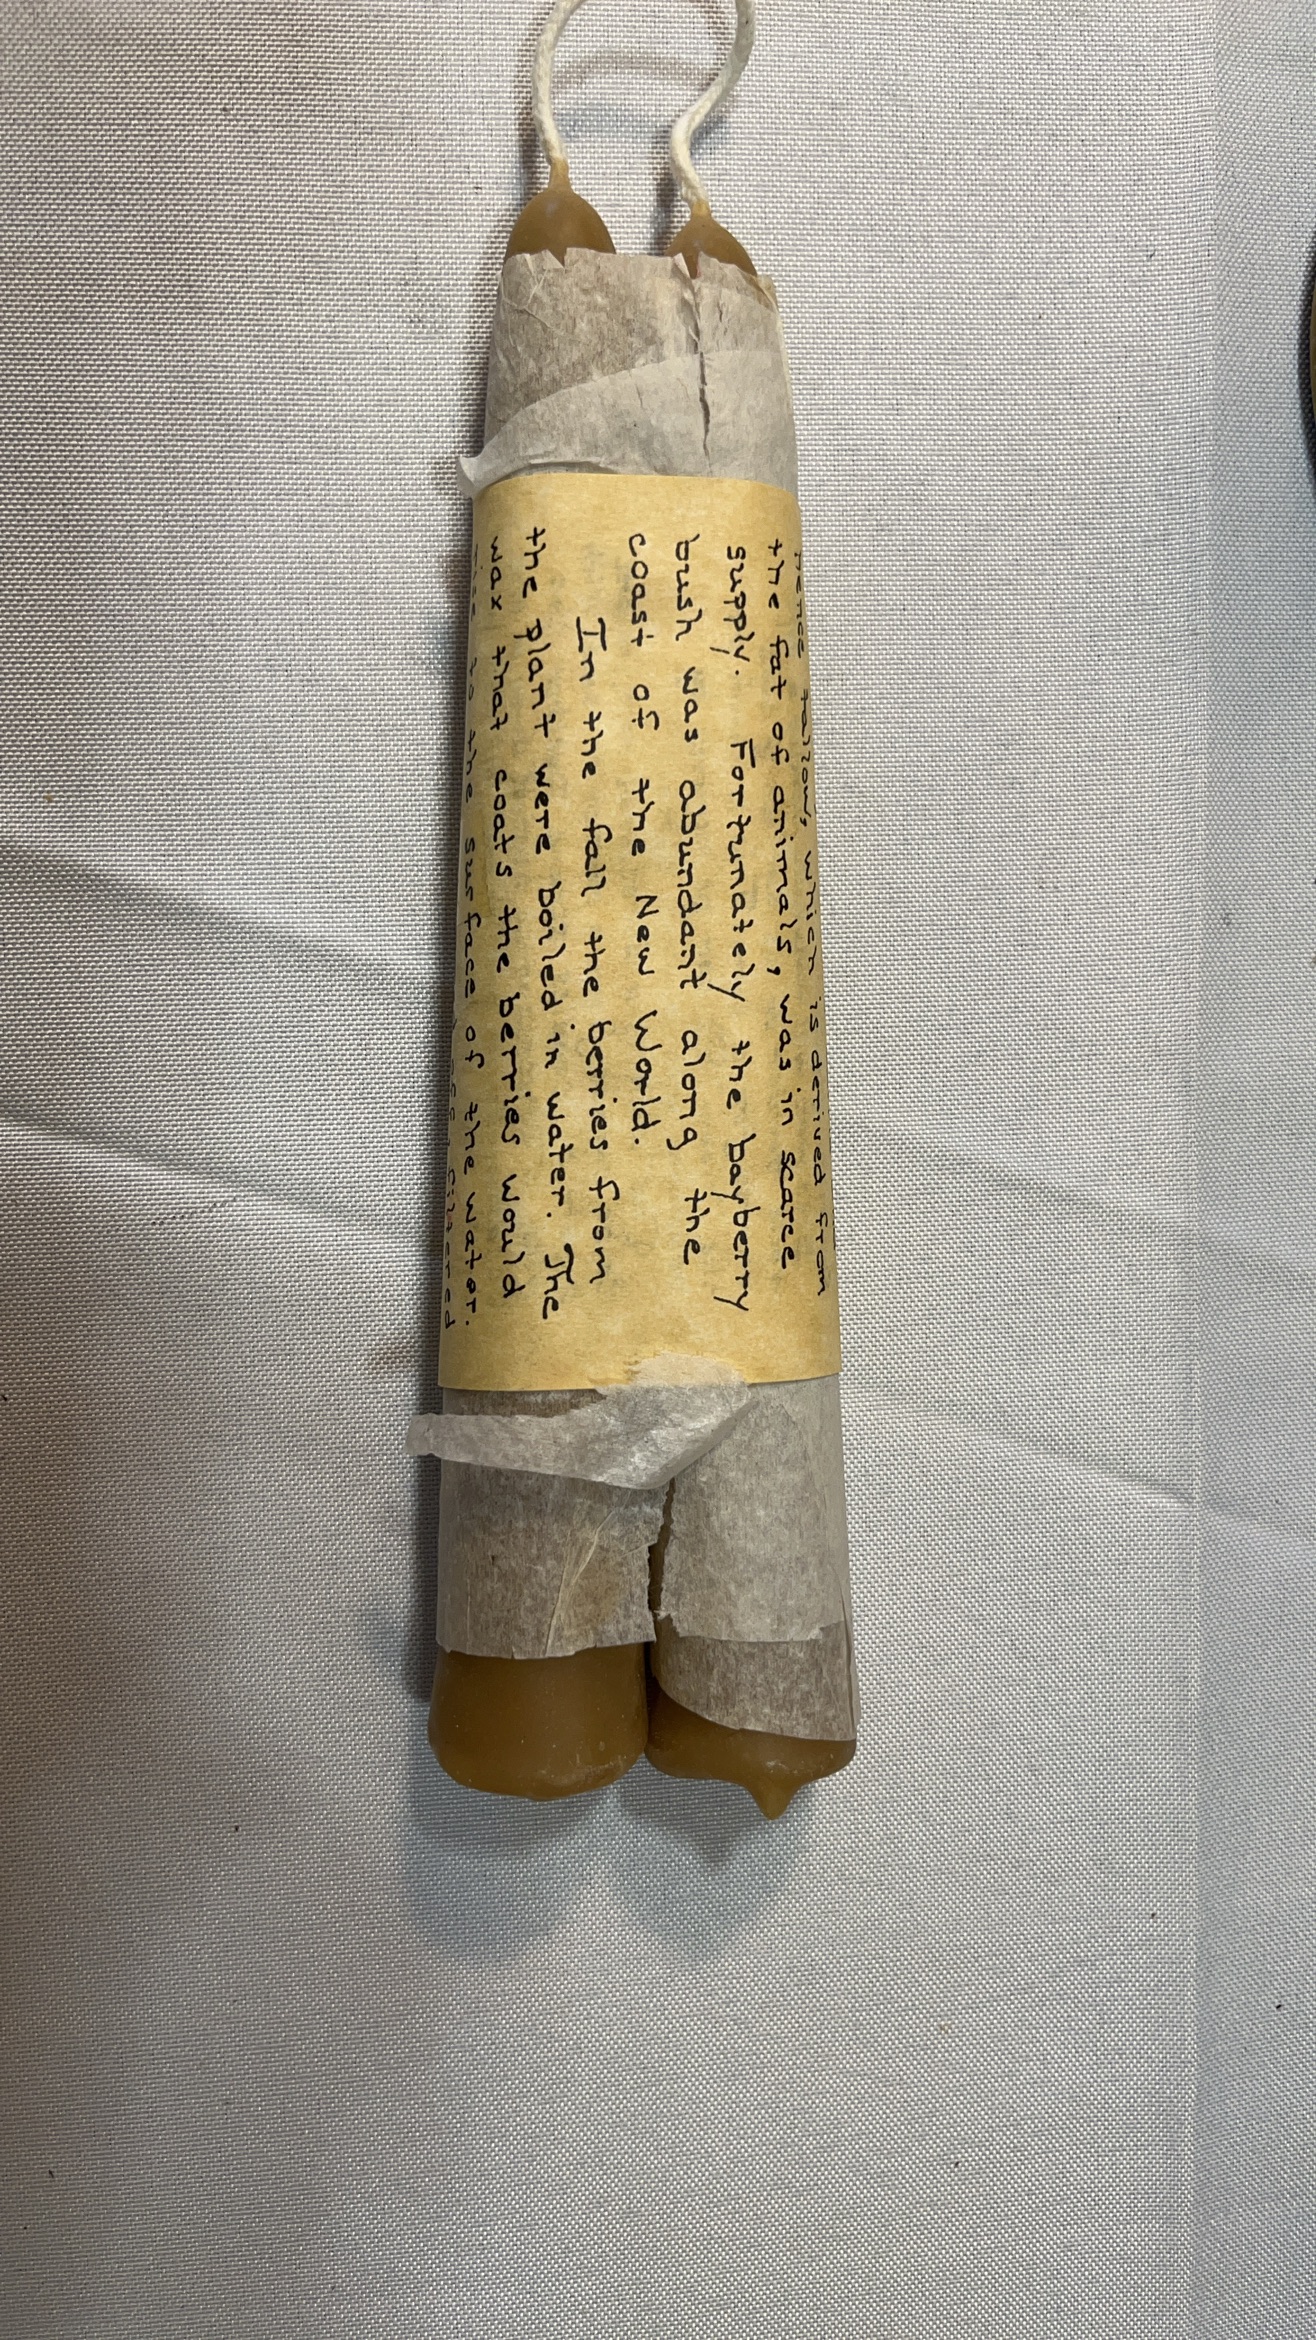 hence tallow, which is derived from
the fat of animals, was in scarce
supply. Fortunately the bayberry
bush was abundant along the
coast of the New World.
In the fall the berries from
the plant were boiled in water. The
wax that coats the berries would
rise to the surface of the water.
filtered